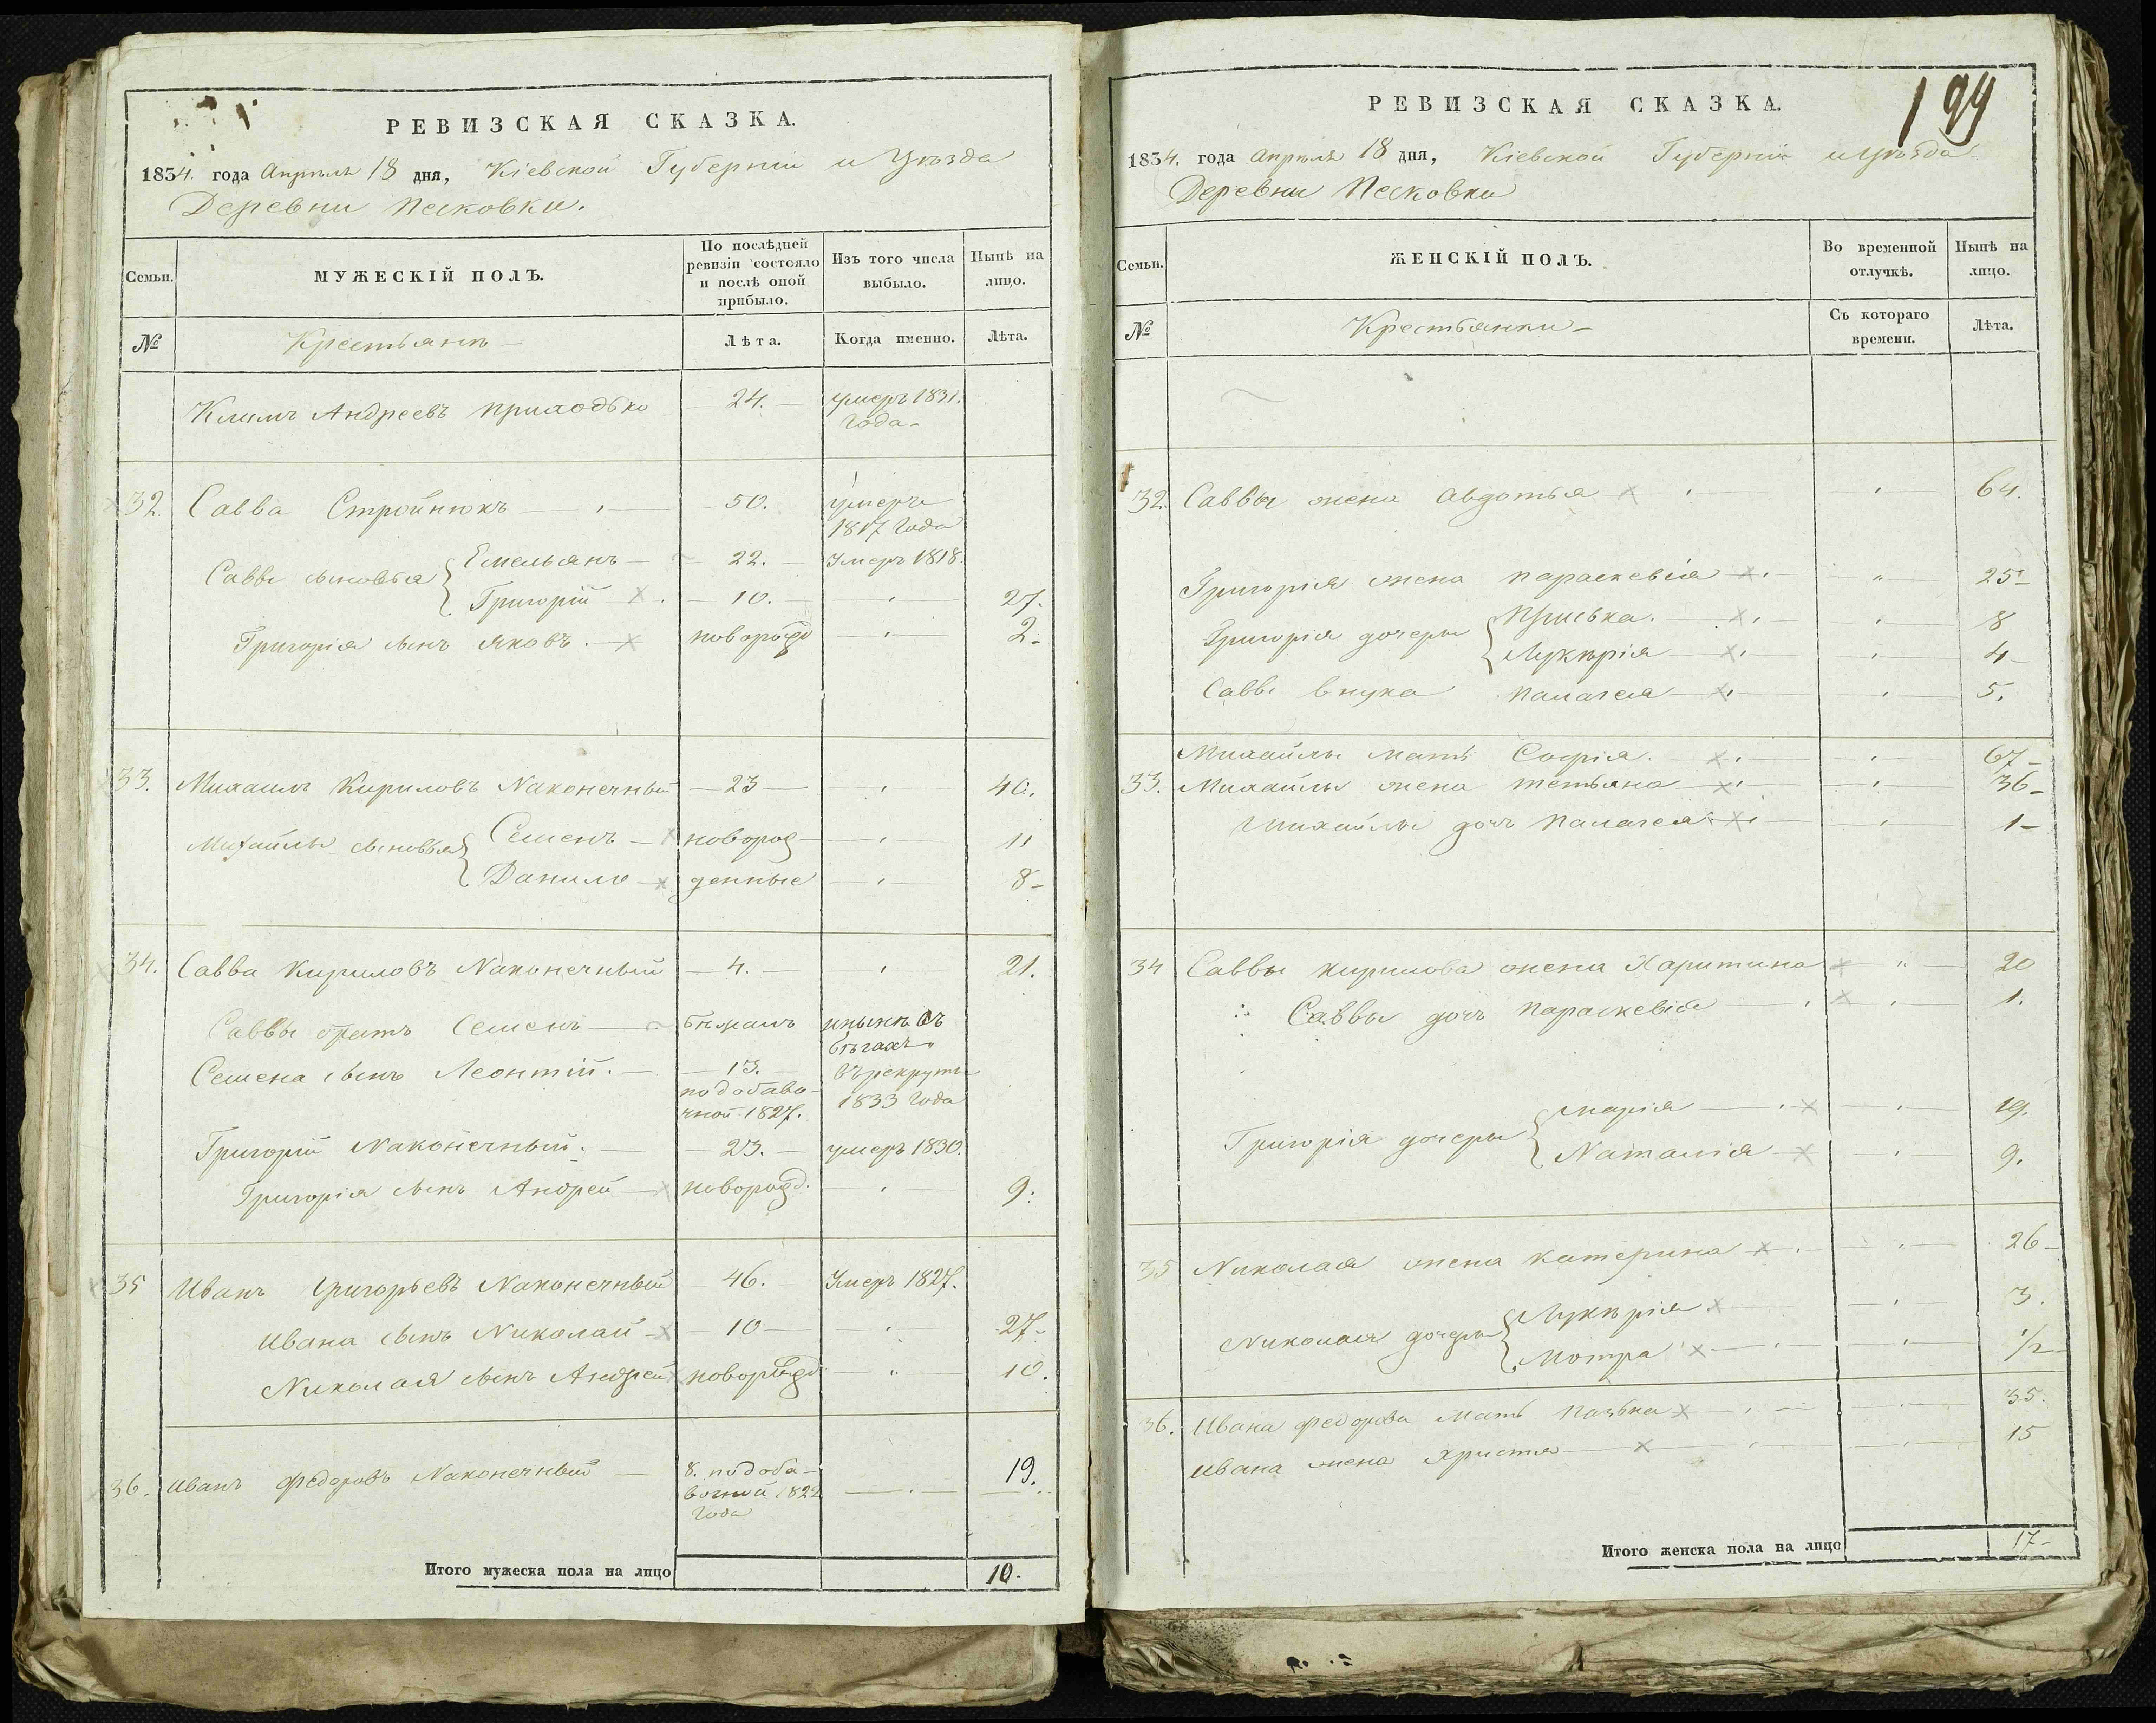 РЕВИЗСКАЯ СКАЗКА.
1834. года Апреля 18 дня, Кіевской Губерніи и Уѣзда
Деревни Песковки.
Семьи. МУЖЕСКІЙ ПОЛЪ. По послѣдней ревизіи состояло и послѣ оной прибыло. Изъ того числа выбыло. Нынѣ на лицо.
№ Крестьянъ Лѣта. Когда именно. Лѣта.
Климъ Андреевъ Приходько 24. умеръ 1831.
года
32. Савва Стройнюкъ 50. умеръ
1817 года
Саввы сыновья Емельянъ 22. Умеръ 1818.
Григорій 10. 27.
Григорія сынъ Яковъ новорожд 2
33. Михаилъ Кириловъ Наконечный 23 40.
Михайлы сыновья Семенъ новорож 11
Данило денные 8
34. Савва Кириловъ Наконечный 4. 21.
Саввы братъ Семенъ бежалъ и нынѣ въ
бѣгахъ
Семена сынъ Леонтій. 13. въ рекруты
по добаво- 1833 года
чной 1827.
Григорій Наконечный. 23. умеръ 1830.
Григорія сынъ Андрей новорожд. 9.
35 Иванъ Григорьевъ Наконечный 46. Умеръ 1827.
Ивана сынъ Николай 10 27
Николая сынъ Андрей новорожд 10.
36. Иванъ Федоровъ Наконечный 8. по доба- 19.
вочной 1822
года
Итого мужеска пола на лицо 10.
199
РЕВИЗСКАЯ СКАЗКА.
1834. года Апреля 18 дня, Кіевской Губерніи и Уѣзда
Деревни Песковки
Семьи. ЖЕНСКІЙ ПОЛЪ. Во временной отлучкѣ. Нынѣ на лицо.
№ Крестьянки Съ котораго времени. Лѣта.
32. Саввы жена Авдотья 64.
Григорія жена Параскевія 25
Григорія дочеры Приська. 8
Лукѣрія 4
Саввы внука Палагея 5.
Михайлы мать Софія. 67
33. Михайлы жена Тетьяна 36
Михайлы дочь Палагея 1
34 Саввы Кирилова жена Харитина 20
Саввы дочь Параскевія 1.
Григорія дочеры Марія 19.
Наталія 9.
35 Николая жена Катерина 26
Николая дочеры Лукѣрія 3.
Мотра 1/2
36. Ивана Федорова мать Пазька 35.
Ивана жена Христя 15
Итого женска пола на лицо 17